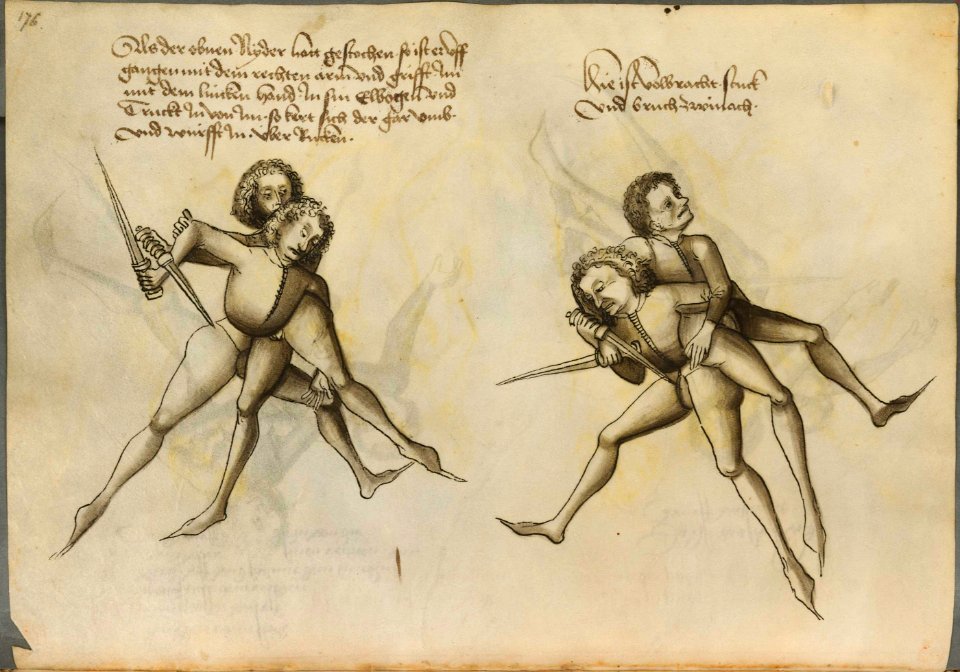 176
Als der obnen Nyder hatt gestochen so ist er uff
gangen mit dem rechten arm und grifft im
mit dem lincken hand In sin Elbogen und
Truckt In von im so kert sich der gar umb
und wurfft In uber Rucken.
Hie ist volbracht stuck
und bruch zwifach.